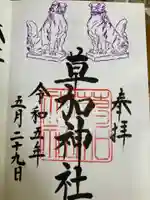 奉拝
草加神社
令和五年
五月二十九日